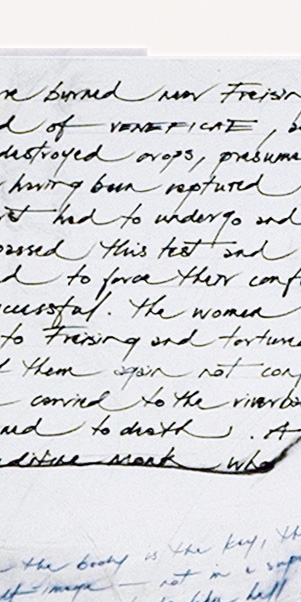 re burned near Freisin
d of VENEFICAE, a
destroyed crops, presuma
having been captured
rst had to undergo and
passed this test and
d to force their conf
uccessful. The women
to Freising and tortured
d them again not con
carried to the riverba
ned to death. A
edictine monk who
the body is the key, th
not in a
hell